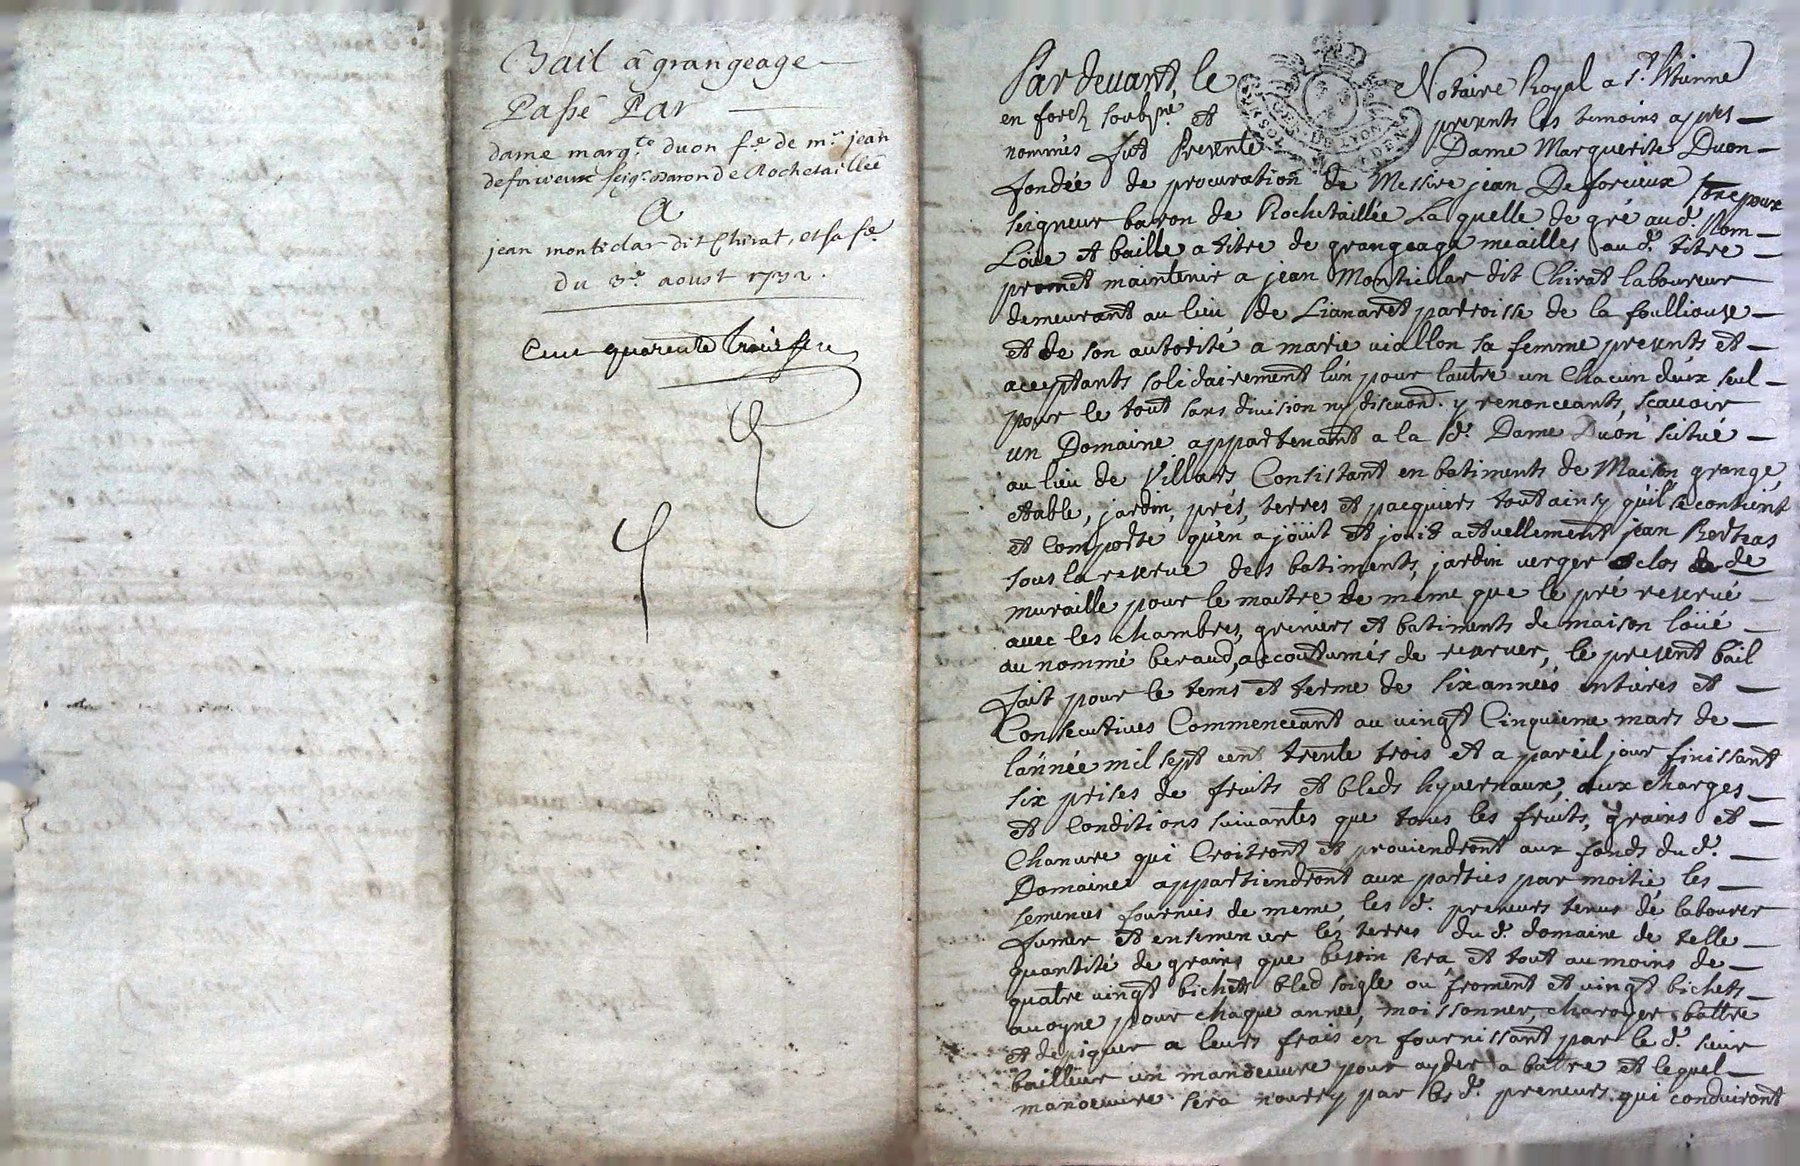 Bail a grangeage
Passé Par
dame marg.te duon f.e de m.r jean
deforcieux seig.r Baron de Rochetaillée
A
jean monteclar dit Chirat, et sa f.e
du 3.e aoust 1732.
Cent quarente trois
Pardevant le Notaire Royal a S.t Etienne
en forez soub.né et presents les temoins apres
nommés fut Presente Dame Marguerite Duon
fondée de procuration de Messire jean Deforcieux son epoux
seigneur baron de Rochetaillée La quelle de gré aud. nom
Loüe et baille a titre de grangeage meailles aud.t titre
promet maintenir a jean Monticllar dit Chirat laboureur
demeurant au lieu de Lianaret parroisse de la foulliouse
et de son autorité a marie viallon sa femme presents et
aceptants solidairement lun pour lautre un Chacun deux seul
pour le tout sans division ny discuond. y renonceants, scavoir
un Domaine appartenant a la d.e Dame Duon situé
au lieu de Villars Consistant en batiments de Maison grange,
etable, jardin, prés, terres et pacquiers tout ainsy quil se contient
et Comporte quen a joüit et joüit actuellement jean Bertras
sous la reserve des batiments, jardin verger et clos de
muraille pour le maitre de meme que le pré reservé
avec les chambres, greniers et batiments de maison loüé
au nommé beraud, accoutumés de reserver, le present bail
fait pour le tems et terme de six années entieres et
Consecutives Commenceant au vingt Cinquieme mars de
lánnée mil sept cent trente trois et a pareil jour finissant
six prises de fruits et bleds hyvernaux, aux charges
et Conditions suivantes que tous les fruits, grains et
Chanvre qui Croitront et proviendront aux fonds du d.
Domaine appartiendront aux parties par moitié, les
semences fournies de meme, les d. preneurs tenus de labourer
fumer et ensemencer les terres du d. domaine de telle
quantité de grains que besoin sera et tout au moins de
quatre vingt bichets bled soigle ou froment et vingt bichets
avoyne pour chaque année, moissonner, charoyer battre
et depiquer a leurs frais en fournissant par le d. sieur
bailleur un manoeuvre pour ayder a batre et lequel
manoeuvre sera nourry par les d. preneurs qui conduiront